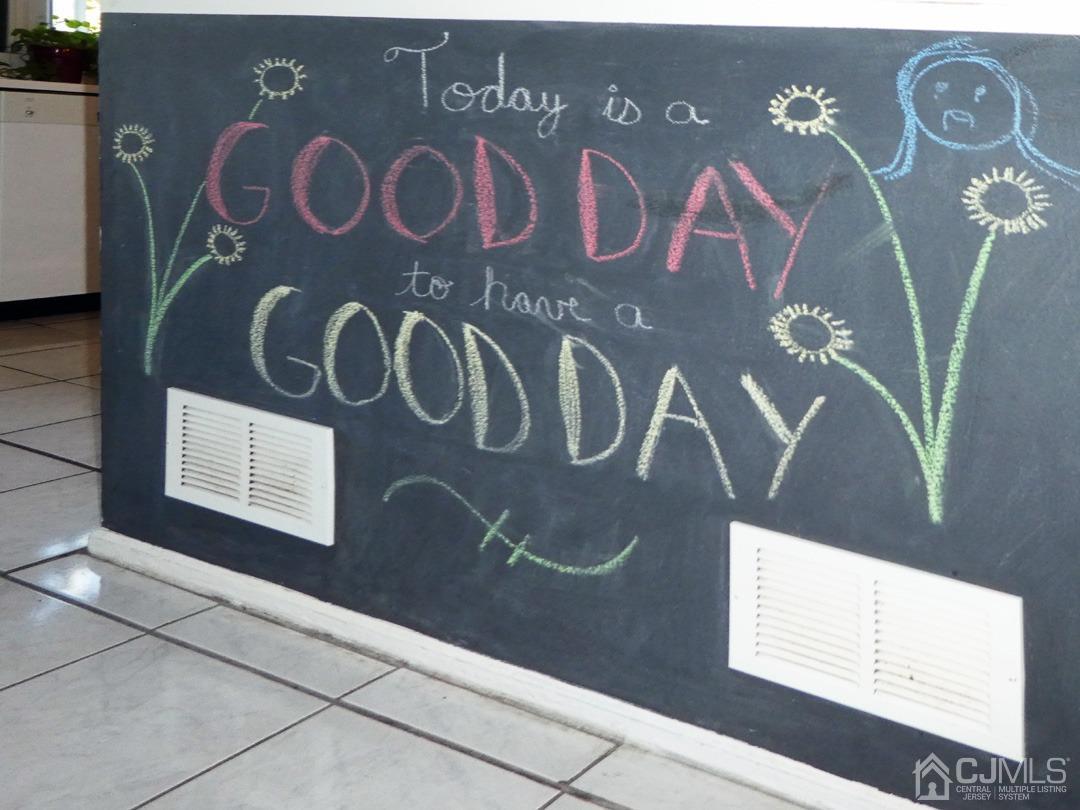 Today is a
GOOD DAY
to have a
GOOD DAY
CJMLS®
CENTRAL | MULTIPLE LISTING
JERSEY | SYSTEM